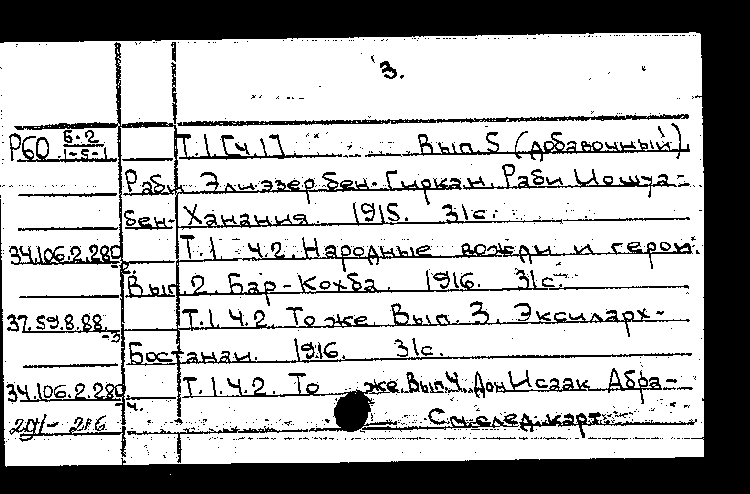 3.
Р60 Б-2/1-5-1 Т.1.[ч.1] Вып. 5 (добавочный).
Раби Элиэзер бен-Гиркан. Раби Иошуа-
бен-Ханания. 1915. 31с.
34.106.2.280 Т.1 ч.2. Народные вожди и герои.
-2. Вып. 2. Бар-Кохба. 1916. 31с.
37.59.8.88. Т.1.ч.2. То же. Вып. 3. Эксиларх-
-3 Бостанаи. 1916. 31с.
34.106.2.280 Т.1.ч.2. То же. Вып.4. Дон Исаак Абра-
-4. См. след. карт.